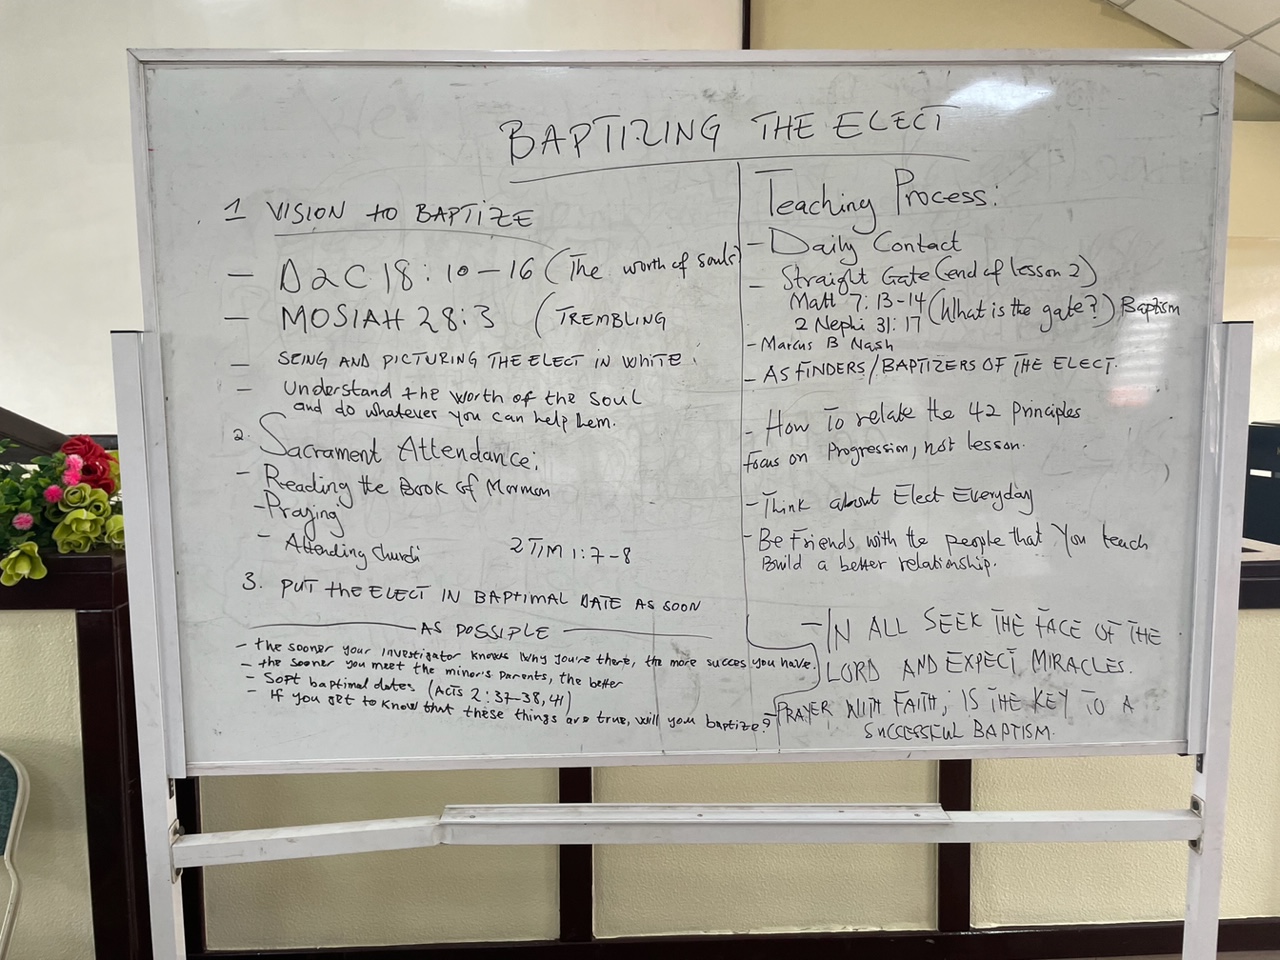 BAPTIZING THE ELECT
1 VISION to BAPTIZE
- D&C 18:10-16 (The worth of souls)
- MOSIAH 28:3 (TREMBLING
- SEING AND PICTURING THE ELECT IN WHITE.
- Understand the worth of the soul
and do whatever you can help them.
2. Sacrament Attendance:
- Reading the Book of Mormon
- Praying
- Attending church
2 TIM 1:7-8
3. PUT the ELECT IN BAPTIMAL DATE AS SOON
AS POSSIPLE
- the sooner your investigator knows why you're there, the more succes you have.
- the sooner you meet the minor's parents, the better
- Soft baptimal dates (ACTS 2:37-38,41)
- If you get to know that these things are true, will you baptize?
Teaching Process:
- Daily Contact
- Straight Gate (end of lesson 2)
Matt 7:13-14 (What is the gate?) Baptism
2 Nephi 31:17
- Marcus B Nash
- AS FINDERS/BAPTIZERS OF THE ELECT.
- How To relate the 42 principles
Focus on Progression, not lesson.
- Think about Elect Everyday
- Be Friends with the people that You teach
Build a better relationship.
- IN ALL SEEK THE FACE OF THE
LORD AND EXPECT MIRACLES.
- PRAYER WITH FAITH; IS THE KEY TO A
SUCCESSFUL BAPTISM.